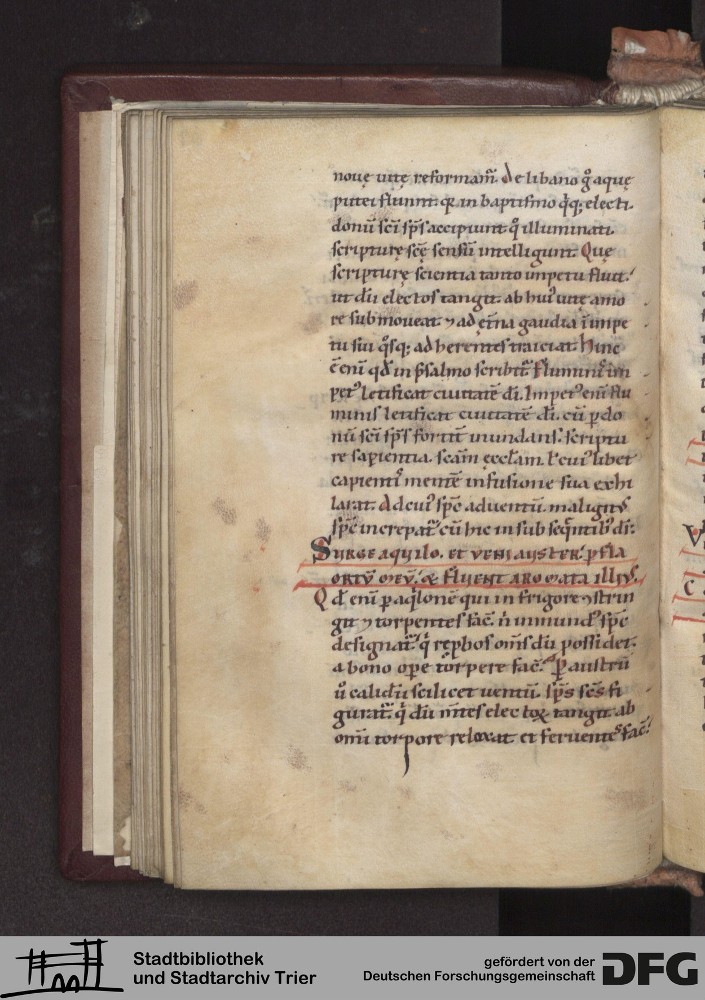 nouę uitę reformam̄. de libano g̊ aquę
putei fluunt. q̅a in baptismo q̇q; electi.
donū sc̄i sp̄s accipiunt q̊ illuminati.
scripturę scę̄ sensū intelligunt. Quę
scripturę scientia tanto impetu fluit.
ut dū electos tangit. ab hui᷒ uitę amo
re submoueat. ⁊ ad etn̄a gaudia ī impe
tu sui q̊sq; adherentes traiciat. Hinc
ē eni qd̄ in psalmo scribit᷑. Flumini᷒ im
pet᷒ letificat ciuitatē dī. Impet᷒ eni flu
minis letificat ciuitatē dī. cū p̱ do
nū sc̄i sp̄s fortit᷑ inundans. scriptu
re sapientia. scām ęccłam. ł cui᷒ libet
capienti᷒ mentē infusione sua exhi
larat. Ad cui᷒ spc̄ aduentū. malign᷒
spc̄ increpat᷑. cū hic in subseq̄ntib᷒ dr̄.
Surge aquilo. et ueni auster. p̱fla
ortū meū. & fluent aromata illi᷒.
Qd̄ eni p̱ aq̇lonē qui in frigore ꝯstrin
git ⁊ torpentes fac̄. n̊ inmund᷒ spc̄
designat᷑. q̇ rep̱bos om̄s dū possidet.
a bono ope̱ torpere fac̄. P̱ austrū
ů calidū scilicet uentū. sp̄s scs̄ fi
gurat᷑. q̇ dū m̄tes electoꝝ tangit. ab
omī torpore relaxat. et feruentes fac̄.
Stadtbibliothek
und Stadtarchiv Trier
gefördert von der
Deutschen Forschungsgemeinschaft
DFG